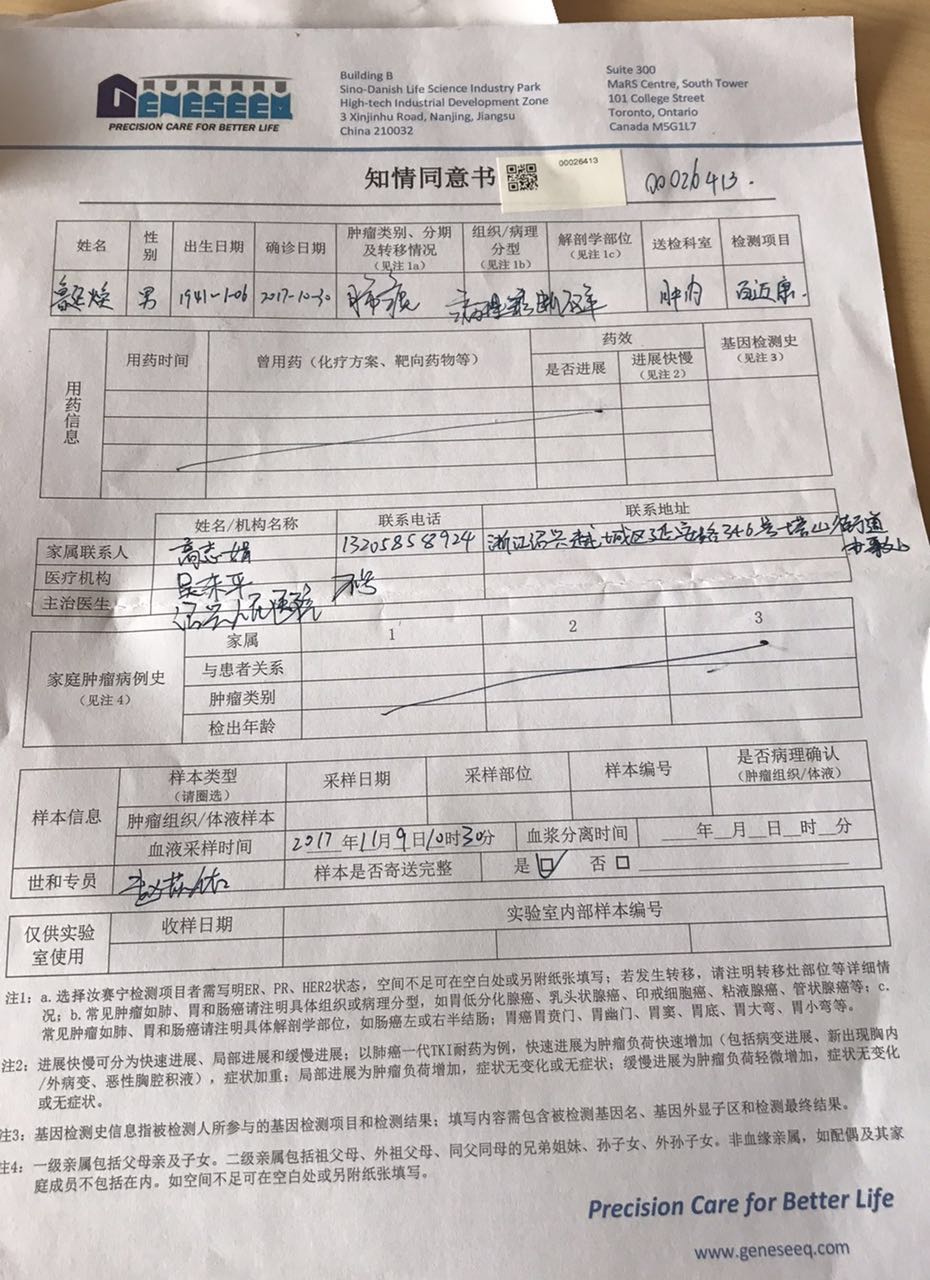 GENESEEQ
PRECISION CARE FOR BETTER LIFE
Building B
Sino-Danish Life Science Industry Park
High-tech Industrial Development Zone
3 Xinjinhu Road, Nanjing, Jiangsu
China 210032
Suite 300
MaRS Centre, South Tower
101 College Street
Toronto, Ontario
Canada M5G1L7
知情同意书 00026413 00026413.
姓名 性别 出生日期 确诊日期 肿瘤类别、分期及转移情况(见注1a) 组织/病理分型(见注1b) 解剖学部位(见注1c) 送检科室 检测项目
男 1941-1-06 2017-10-30 肺癌 病理 肿内
用药信息 用药时间 曾用药（化疗方案、靶向药物等） 药效 基因检测史(见注3)
是否进展 进展快慢(见注2)
姓名/机构名称 联系电话 联系地址
家属联系人 高志娟 13205858924 浙江绍兴越城区延安路346号塔山街道
医疗机构
主治医生 绍兴人民医院
家庭肿瘤病例史(见注4) 家属 1 2 3
与患者关系
肿瘤类别
检出年龄
样本信息 样本类型(请圈选) 采样日期 采样部位 样本编号 是否病理确认(肿瘤组织/体液)
肿瘤组织/体液样本
血液采样时间 2017年11月9日10时30分 血浆分离时间 ___年__月__日__时__分
世和专员 样本是否寄送完整 是☑ 否□
仅供实验室使用 收样日期 实验室内部样本编号
注1：a.选择汝赛宁检测项目者需写明ER、PR、HER2状态，空间不足可在空白处或另附纸张填写；若发生转移，请注明转移灶部位等详细情
况；b.常见肿瘤如肺、胃和肠癌请注明具体组织或病理分型，如胃低分化腺癌、乳头状腺癌、印戒细胞癌、粘液腺癌、管状腺癌等；c.
常见肿瘤如肺、胃和肠癌请注明具体解剖学部位，如肠癌左或右半结肠；胃癌胃贲门、胃幽门、胃窦、胃底、胃大弯、胃小弯等。
注2：进展快慢可分为快速进展、局部进展和缓慢进展；以肺癌一代TKI耐药为例，快速进展为肿瘤负荷快速增加（包括病变进展、新出现胸内
/外病变、恶性胸腔积液），症状加重；局部进展为肿瘤负荷增加，症状无变化或无症状；缓慢进展为肿瘤负荷轻微增加，症状无变化
或无症状。
注3：基因检测史信息指被检测人所参与的基因检测项目和检测结果；填写内容需包含被检测基因名、基因外显子区和检测最终结果。
注4：一级亲属包括父母亲及子女。二级亲属包括祖父母、外祖父母、同父同母的兄弟姐妹、孙子女、外孙子女。非血缘亲属，如配偶及其家
庭成员不包括在内。如空间不足可在空白处或另附纸张填写。
Precision Care for Better Life
www.geneseeq.com